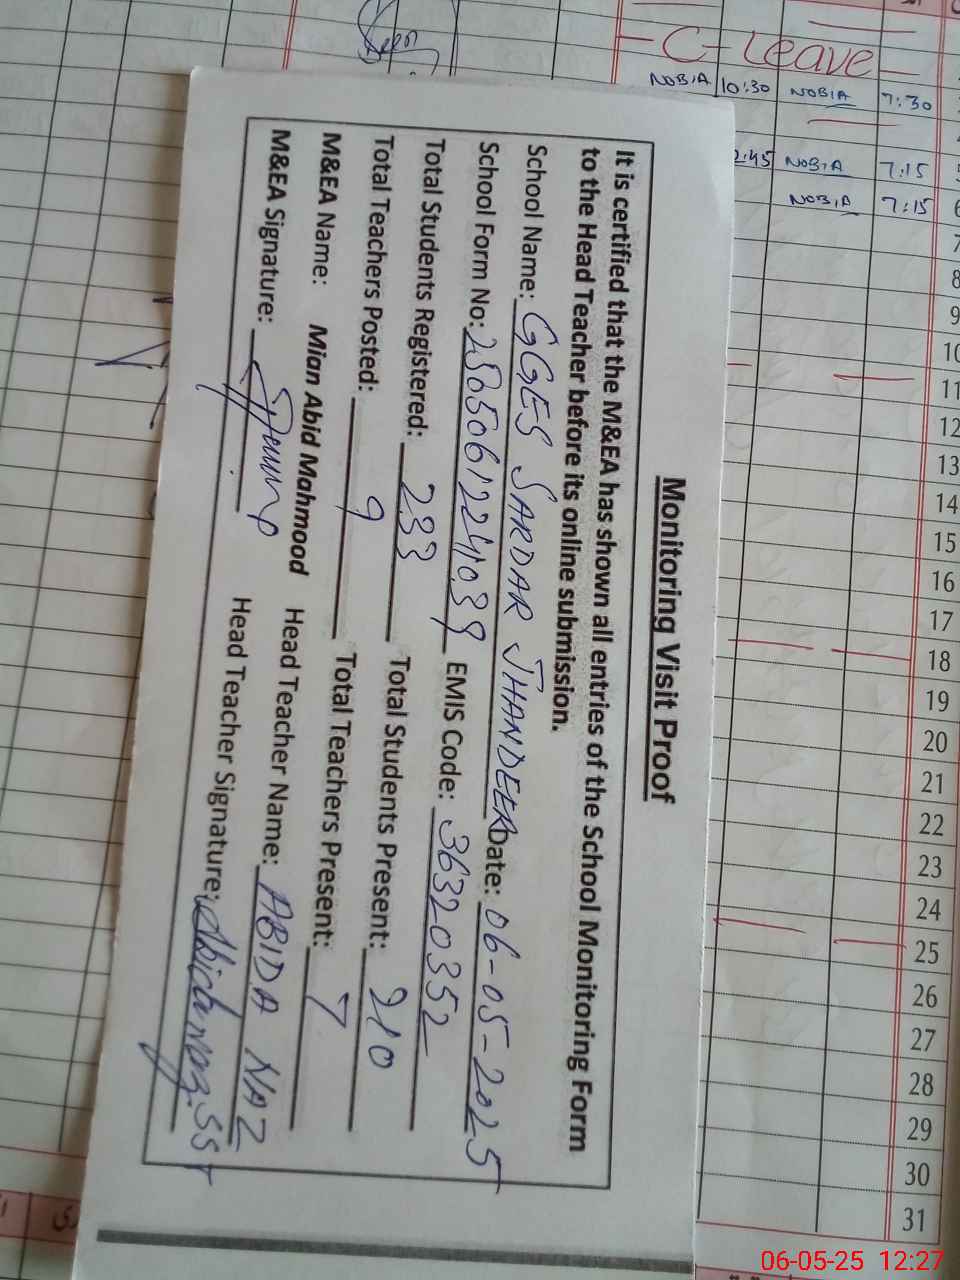 Monitoring Visit Proof
It is certified that the M&EA has shown all entries of the School Monitoring Form
to the Head Teacher before its online submission.
School Name: GGES SARDAR JHANDEER Date: 06-05-2025
School Form No: EMIS Code: 36320352
Total Students Registered: 233 Total Students Present: 210
Total Teachers Posted: 9 Total Teachers Present: 7
M&EA Name: Mian Abid Mahmood Head Teacher Name: ABIDA NAZ
M&EA Signature: Head Teacher Signature: Abida naz. SST
C-Leave
NOBIA 10:30 NOBIA 7:30
2:45 NOBIA 7:15
NOBIA 7:15 6
7
8
9
10
11
12
13
14
15
16
17
18
19
20
21
22
23
24
25
26
27
28
29
30
31
06-05-25 12:27